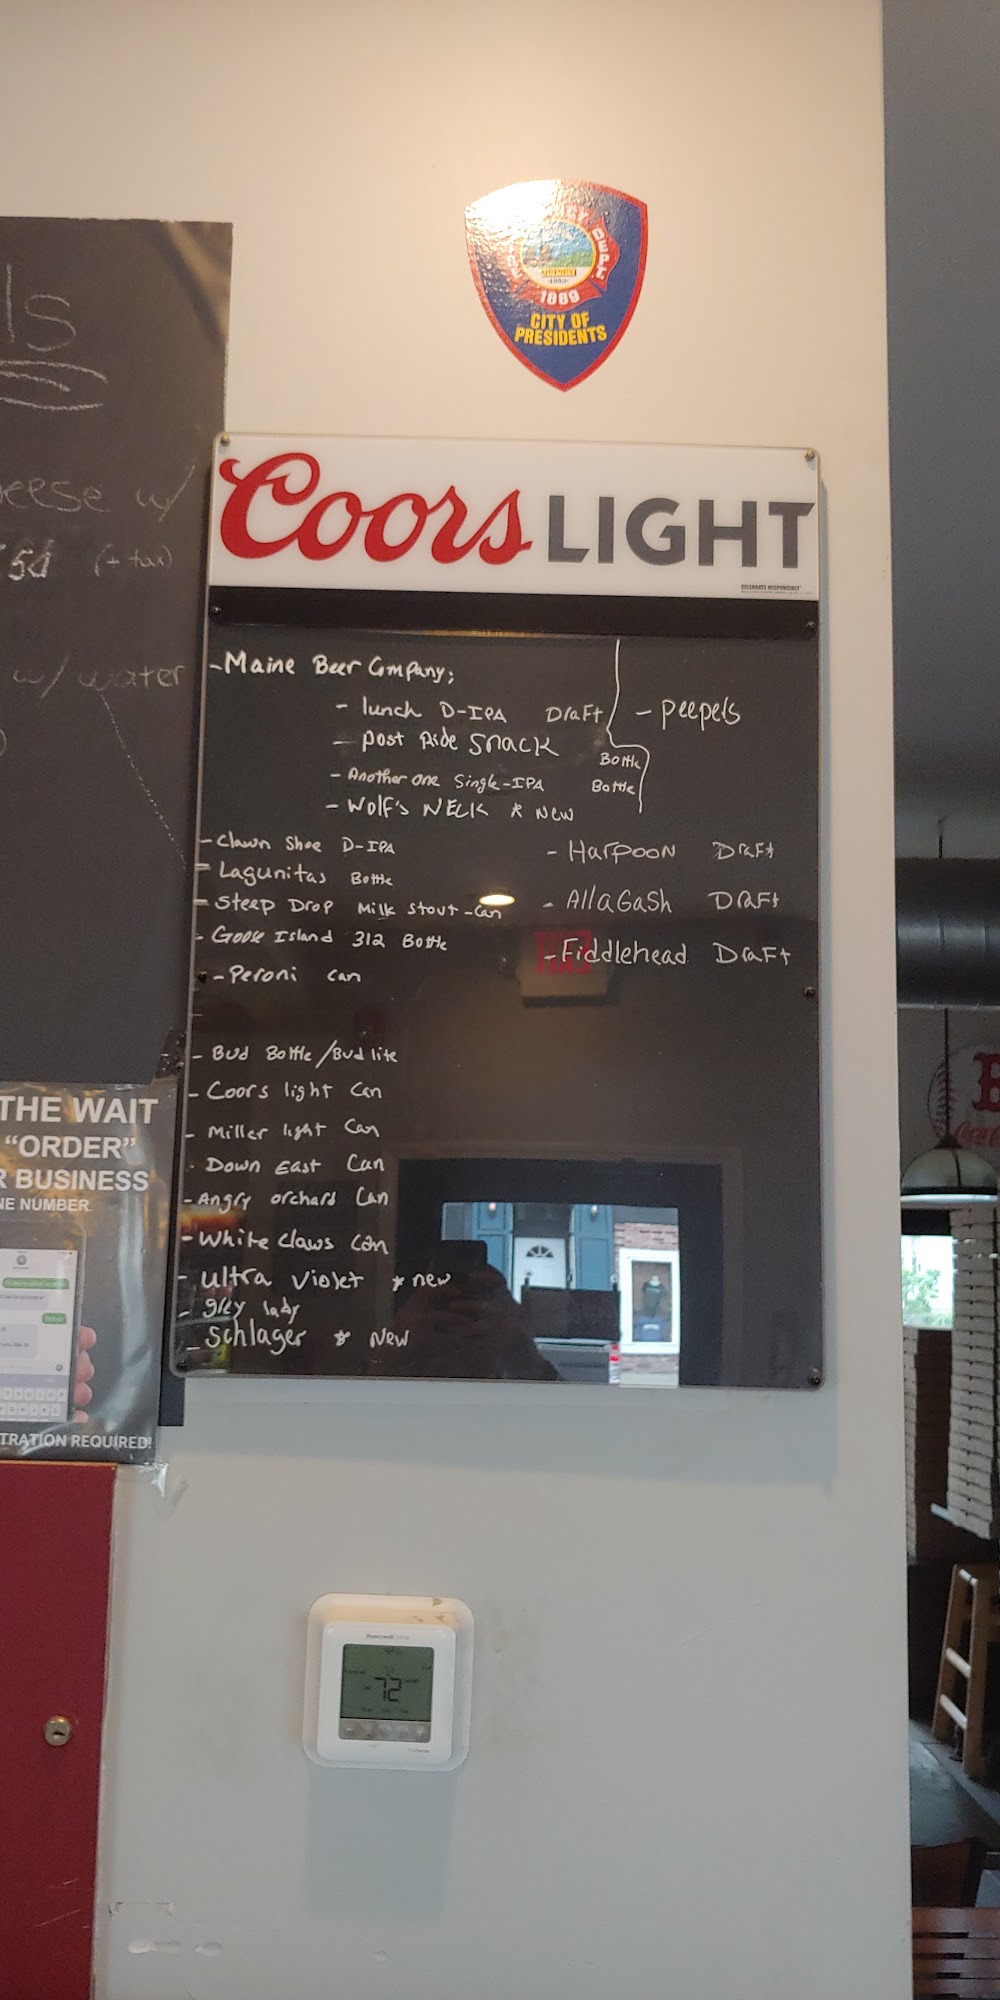 ls
eese w/
(+ tax)
w/ water
DEPT.
1889
CITY OF
PRESIDENTS
Coors LIGHT
CELEBRATE RESPONSIBLY
- Maine Beer Company;
- lunch D-IPA Draft
- post Ride Snack Bottle
- Another one Single-IPA Bottle
- Wolf's NECK * New
- peepels
- Clawn Shoe D-IPA
- Lagunitas Bottle
- Steep Drop Milk Stout - Can
- Goose Island 312 Bottle
- Peroni can
- Harpoon Draft
- Allagash Draft
- Fiddlehead Draft
- Bud Bottle/Bud lite
- Coors light Can
- Miller light Can
- Down East Can
- Angry orchard Can
- White claws Can
- ultra violet * new
- grey lady
- Schlager * New
THE WAIT
"ORDER"
R BUSINESS
NE NUMBER.
TRATION REQUIRED!
Honeywell
72
B